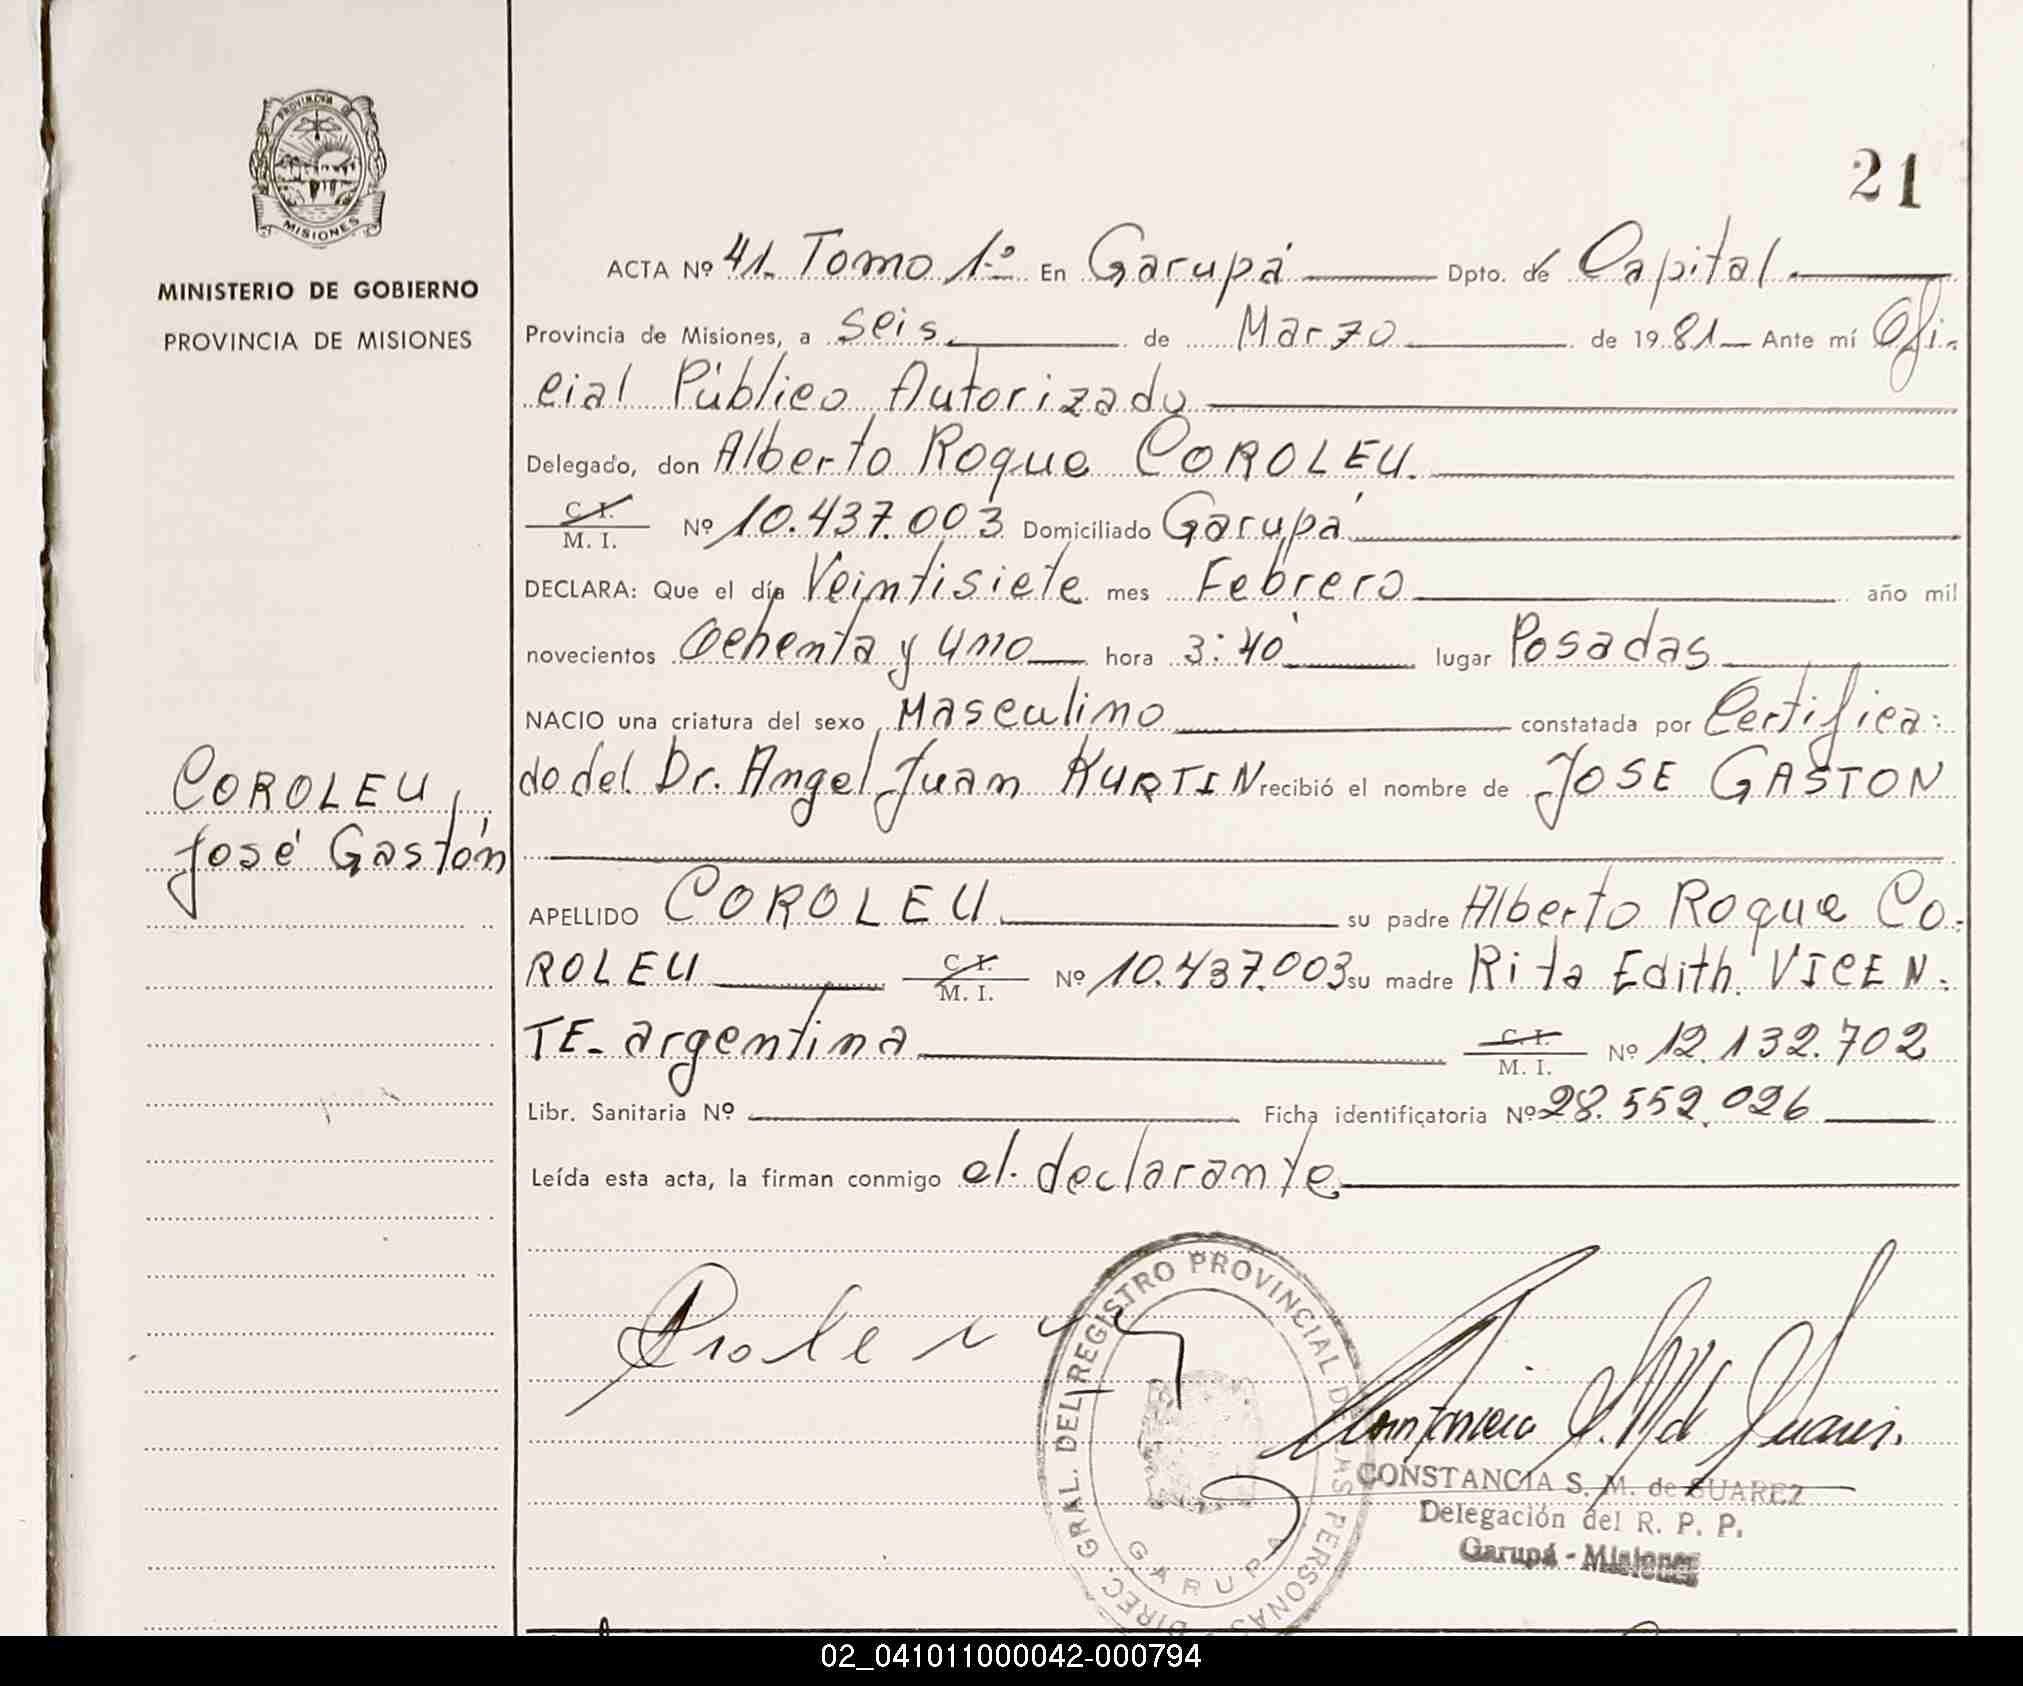 PROVINCIA DE
MISIONES
MINISTERIO DE GOBIERNO
PROVINCIA DE MISIONES
COROLEU,
José Gastón
21
ACTA Nº 41. Tomo 1.º En Garupá Dpto. de Capital
Provincia de Misiones, a seis de Marzo de 1981 Ante mí Ofi-
cial Público Autorizado
Delegado, don Alberto Roque COROLEU.
C. I.
M. I. Nº 10.437.003 Domiciliado Garupá
DECLARA: Que el día Veintisiete mes Febrero año mil
novecientos Ochenta y uno hora 3:40 lugar Posadas
NACIO una criatura del sexo Masculino constatada por Certifica-
do del Dr. Angel Juan KURTIN recibió el nombre de JOSE GASTON
APELLIDO COROLEU su padre Alberto Roque Co-
ROLEU C. I. M. I. Nº 10.437.003 su madre Rita Edith VICEN-
TE - argentina C. I. M. I. Nº 12.132.702
Libr. Sanitaria Nº Ficha identificatoria Nº 28.552.026
Leída esta acta, la firman conmigo el declarante
DIREC. GRAL. DEL REGISTRO PROVINCIAL DE LAS PERSONAS
GARUPA
CONSTANCIA S. M. de SUAREZ
Delegación del R. P. P.
Garupá - Misiones
02_041011000042-000794